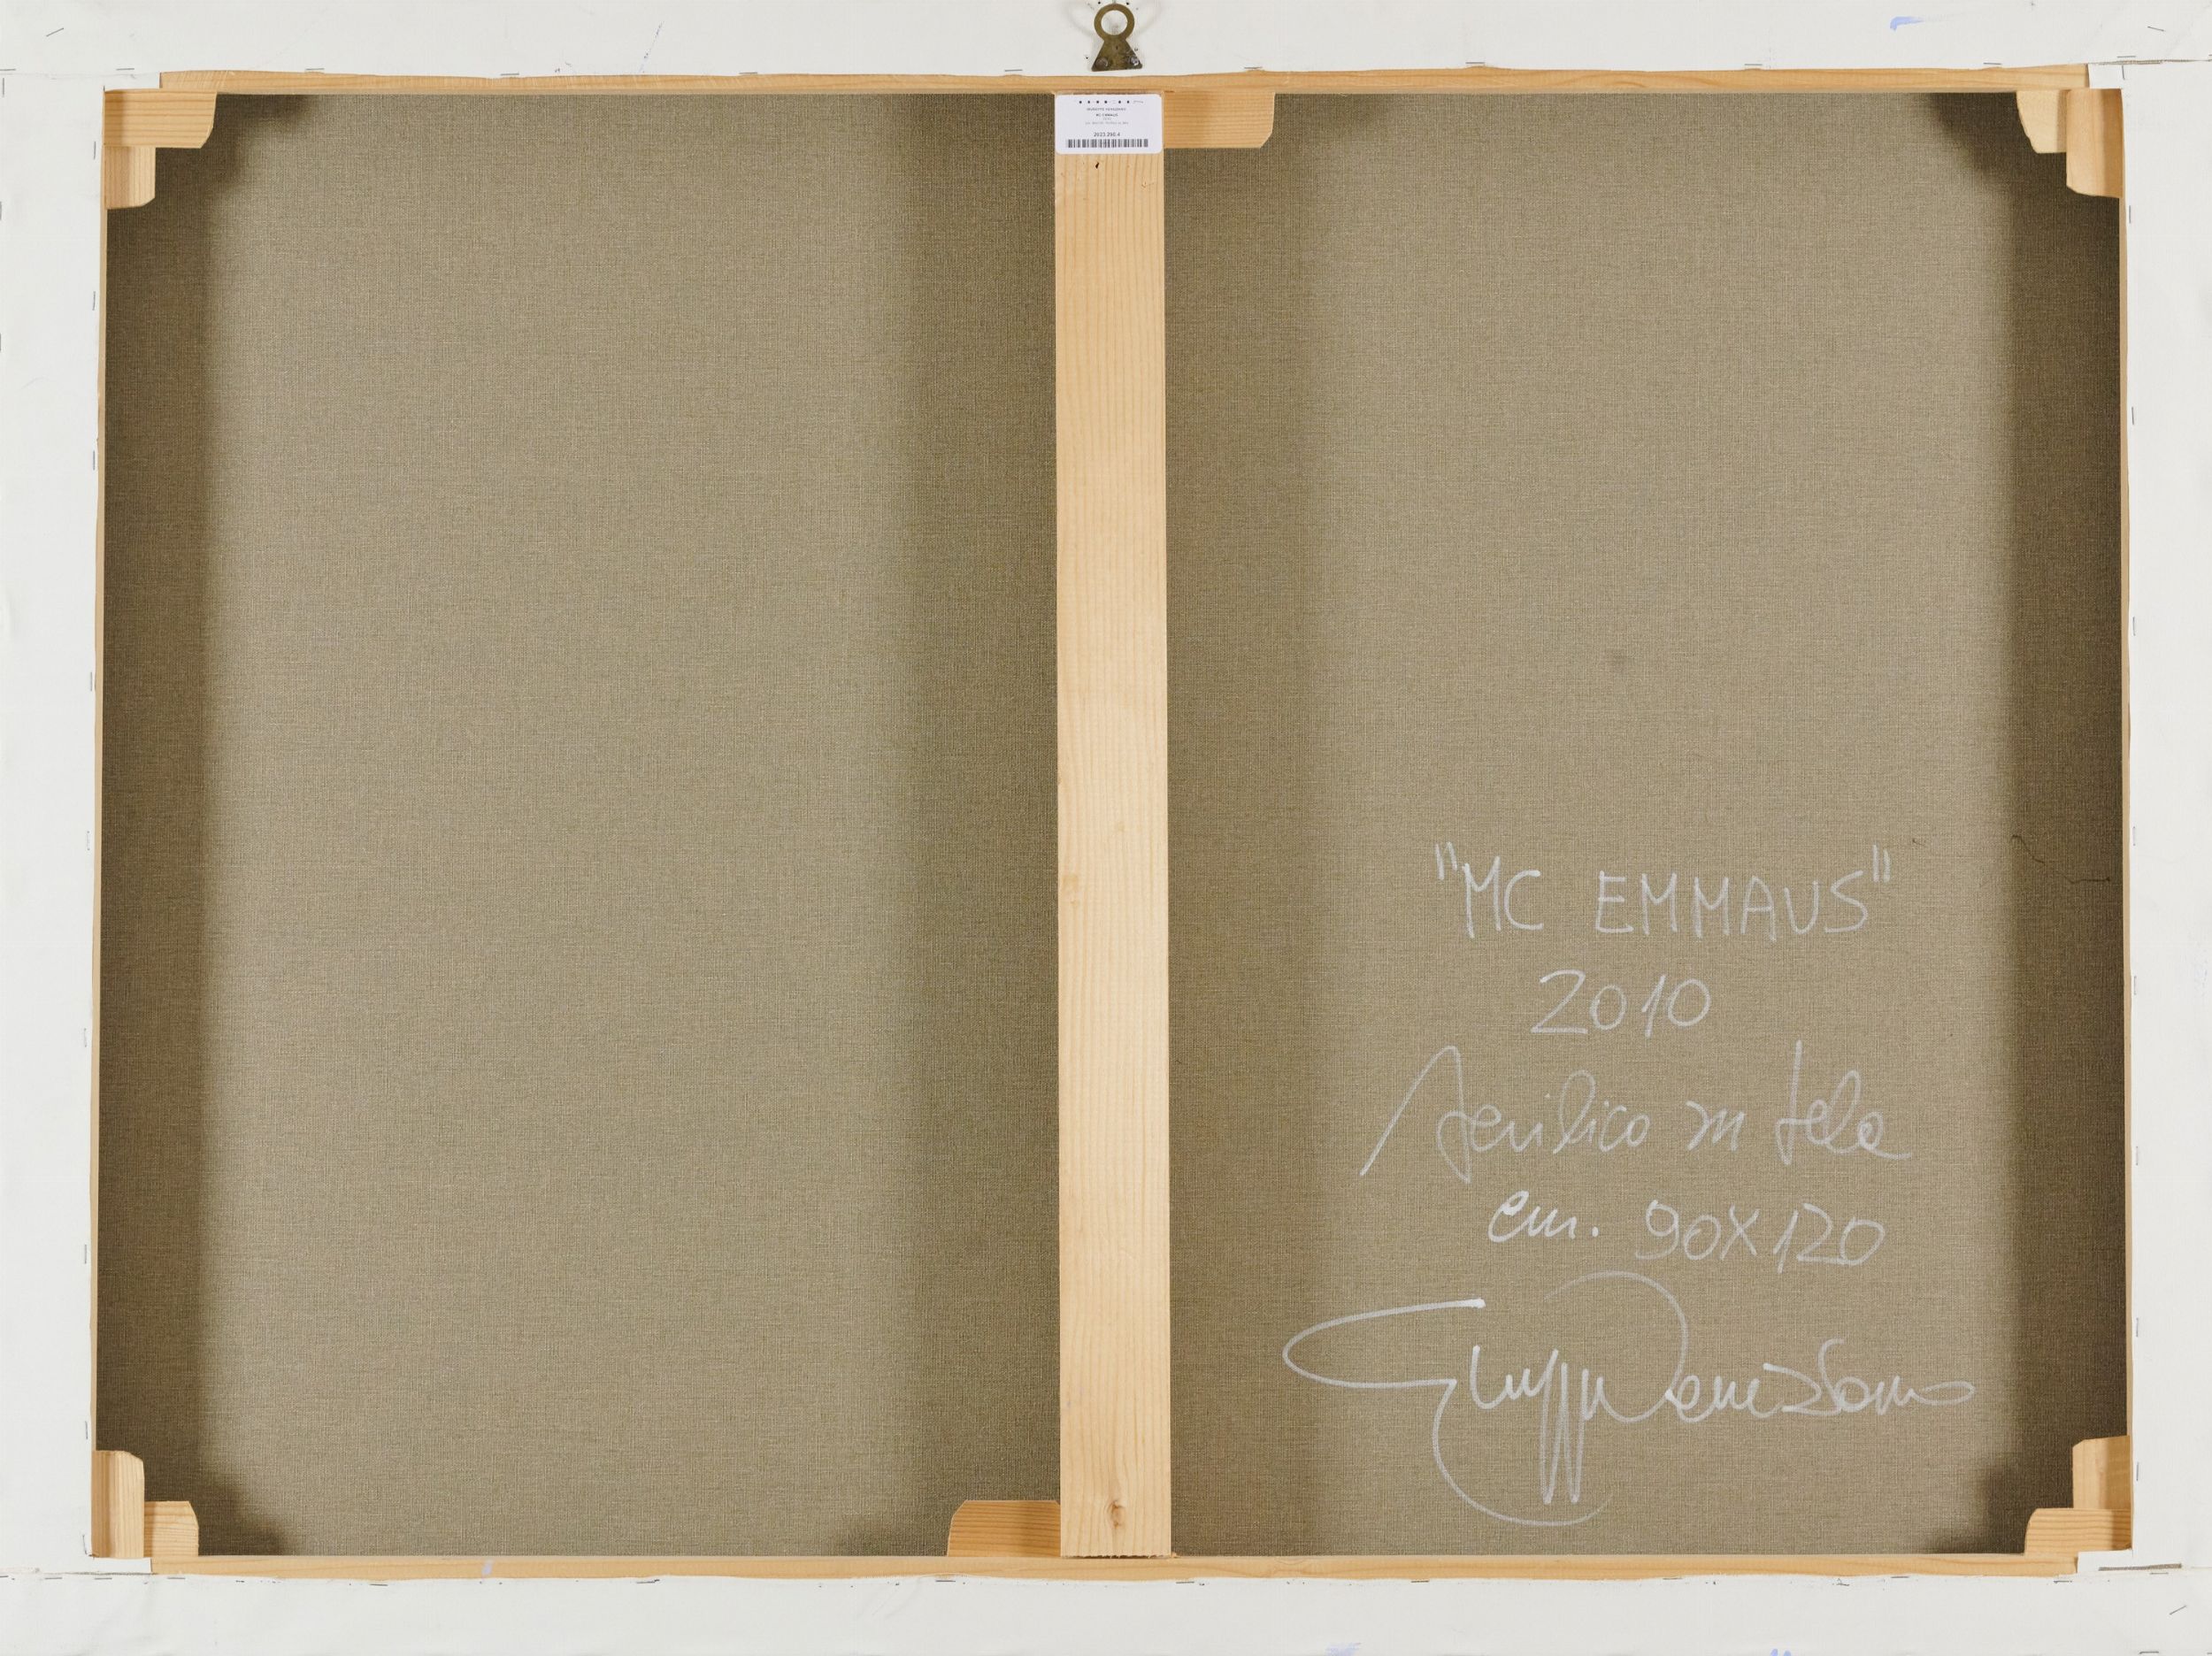 MC EMMAUS
2023.290.4
"MC EMMAUS"
2010
Acrilico su tela
cm. 90X120
Giuseppe Veneziano